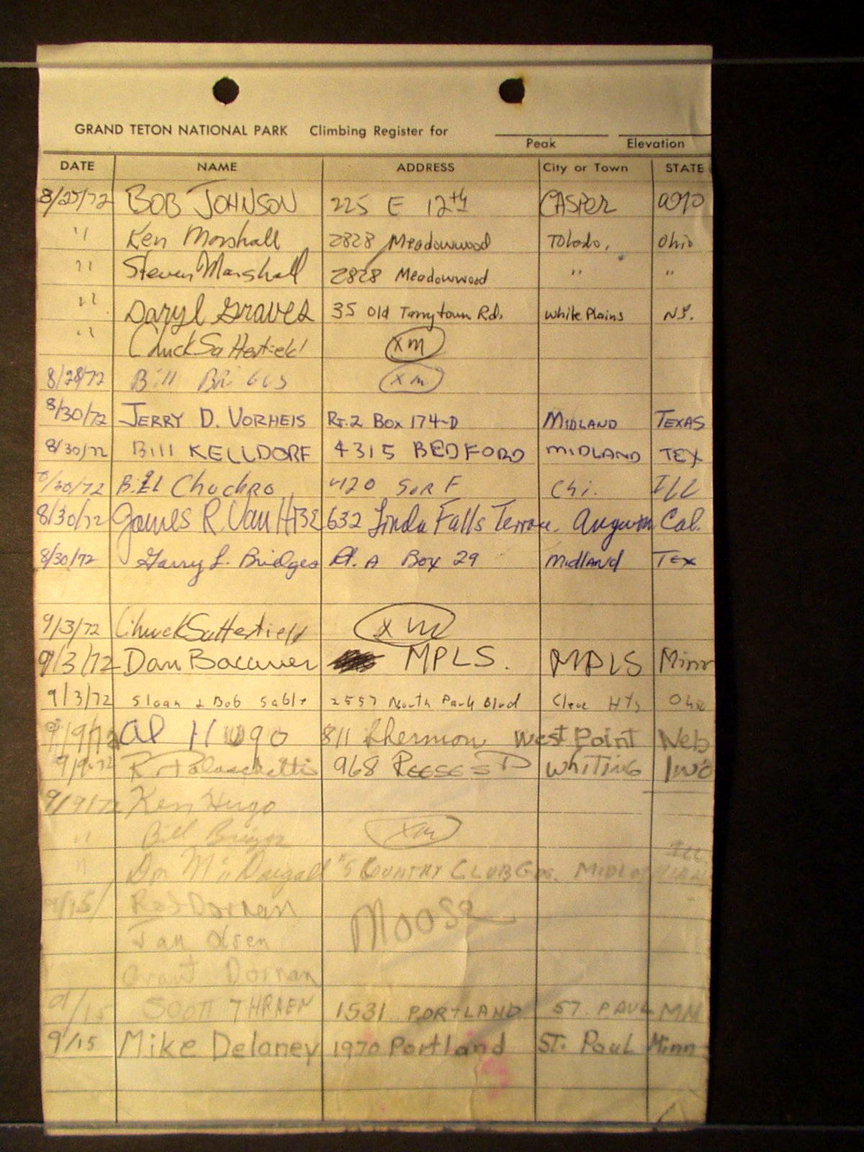 GRAND TETON NATIONAL PARK Climbing Register for
Peak Elevation
DATE NAME ADDRESS City or Town STATE
8/25/72 BOB JOHNSON 225 E 12th CASPER WYO
" Ken Marshall 2828 Meadowwood Toledo, Ohio
" Steven Marshall 2828 Meadowwood " "
" Daryl Graves 35 Old Tarrytown Rd. White Plains N.Y.
" Chuck Satterfield XM
8/28/72 Bill Briggs XM
8/30/72 JERRY D. VORHEIS Rt. 2 Box 174-D MIDLAND TEXAS
8/30/72 Bill KELLDORF 4315 BEDFORD MIDLAND TEX
8/30/72 Bill Chockro 420 Chi. ILL
8/30/72 James R. Van Hise 632 Linda Falls Terrace, Angwin Cal.
8/30/72 Garry L. Bridges Rt. A Box 29 Midland TEX
9/3/72 Chuck Satterfield XM
9/3/72 Dan MPLS. MPLS Minn
9/3/72 Sloan & Bob Sable 2557 North Park Blvd Cleve Hts Ohio
9/9/72 Al Hugo 811 Sherman West Point Neb
9/9/72 968 REESE ST WHITING
9/9/72 Ken Hugo
" Bill Briggs XM
" #5 COUNTRY CLUB ILL.
9/15/ Rob Dornan Moose
Jan Olsen
Grant Dornan
9/15 SCOTT THRAEN 1531 PORTLAND ST. PAUL MN
9/15 Mike Delaney 1970 Portland ST. Paul Minn